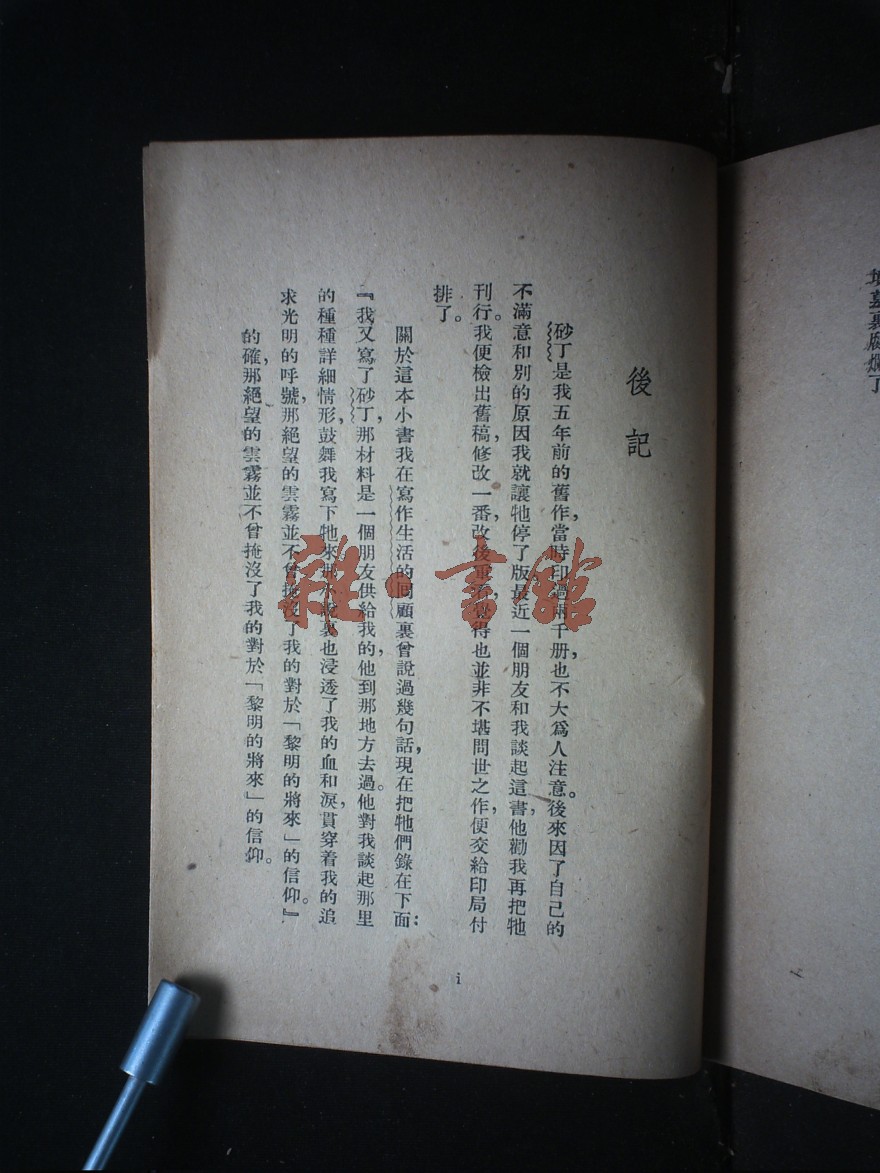 後記
砂丁是我五年前的舊作，當時印過兩千册，也不大爲人注意。後來因了自己的
不滿意和別的原因我就讓牠停了版。最近一個朋友和我談起這書，他勸我再把牠
刊行。我便檢出舊稿，修改一番，改後重看，覺得也並非不堪問世之作，便交給印局付
排了。
關於這本小書我在寫作生活的回顧裏曾說過幾句話，現在把牠們錄在下面：
『我又寫了砂丁，那材料是一個朋友供給我的，他到那地方去過。他對我談起那里
的種種詳細情形，鼓舞我寫下牠來。那小說裏也浸透了我的血和淚，貫穿着我的追
求光明的呼號，那絕望的雲霧並不曾掩沒了我的對於「黎明的將來」的信仰。』
的確，那絕望的雲霧並不曾掩沒了我的對於「黎明的將來」的信仰。
i
雜·書館
墳墓裏腐爛了